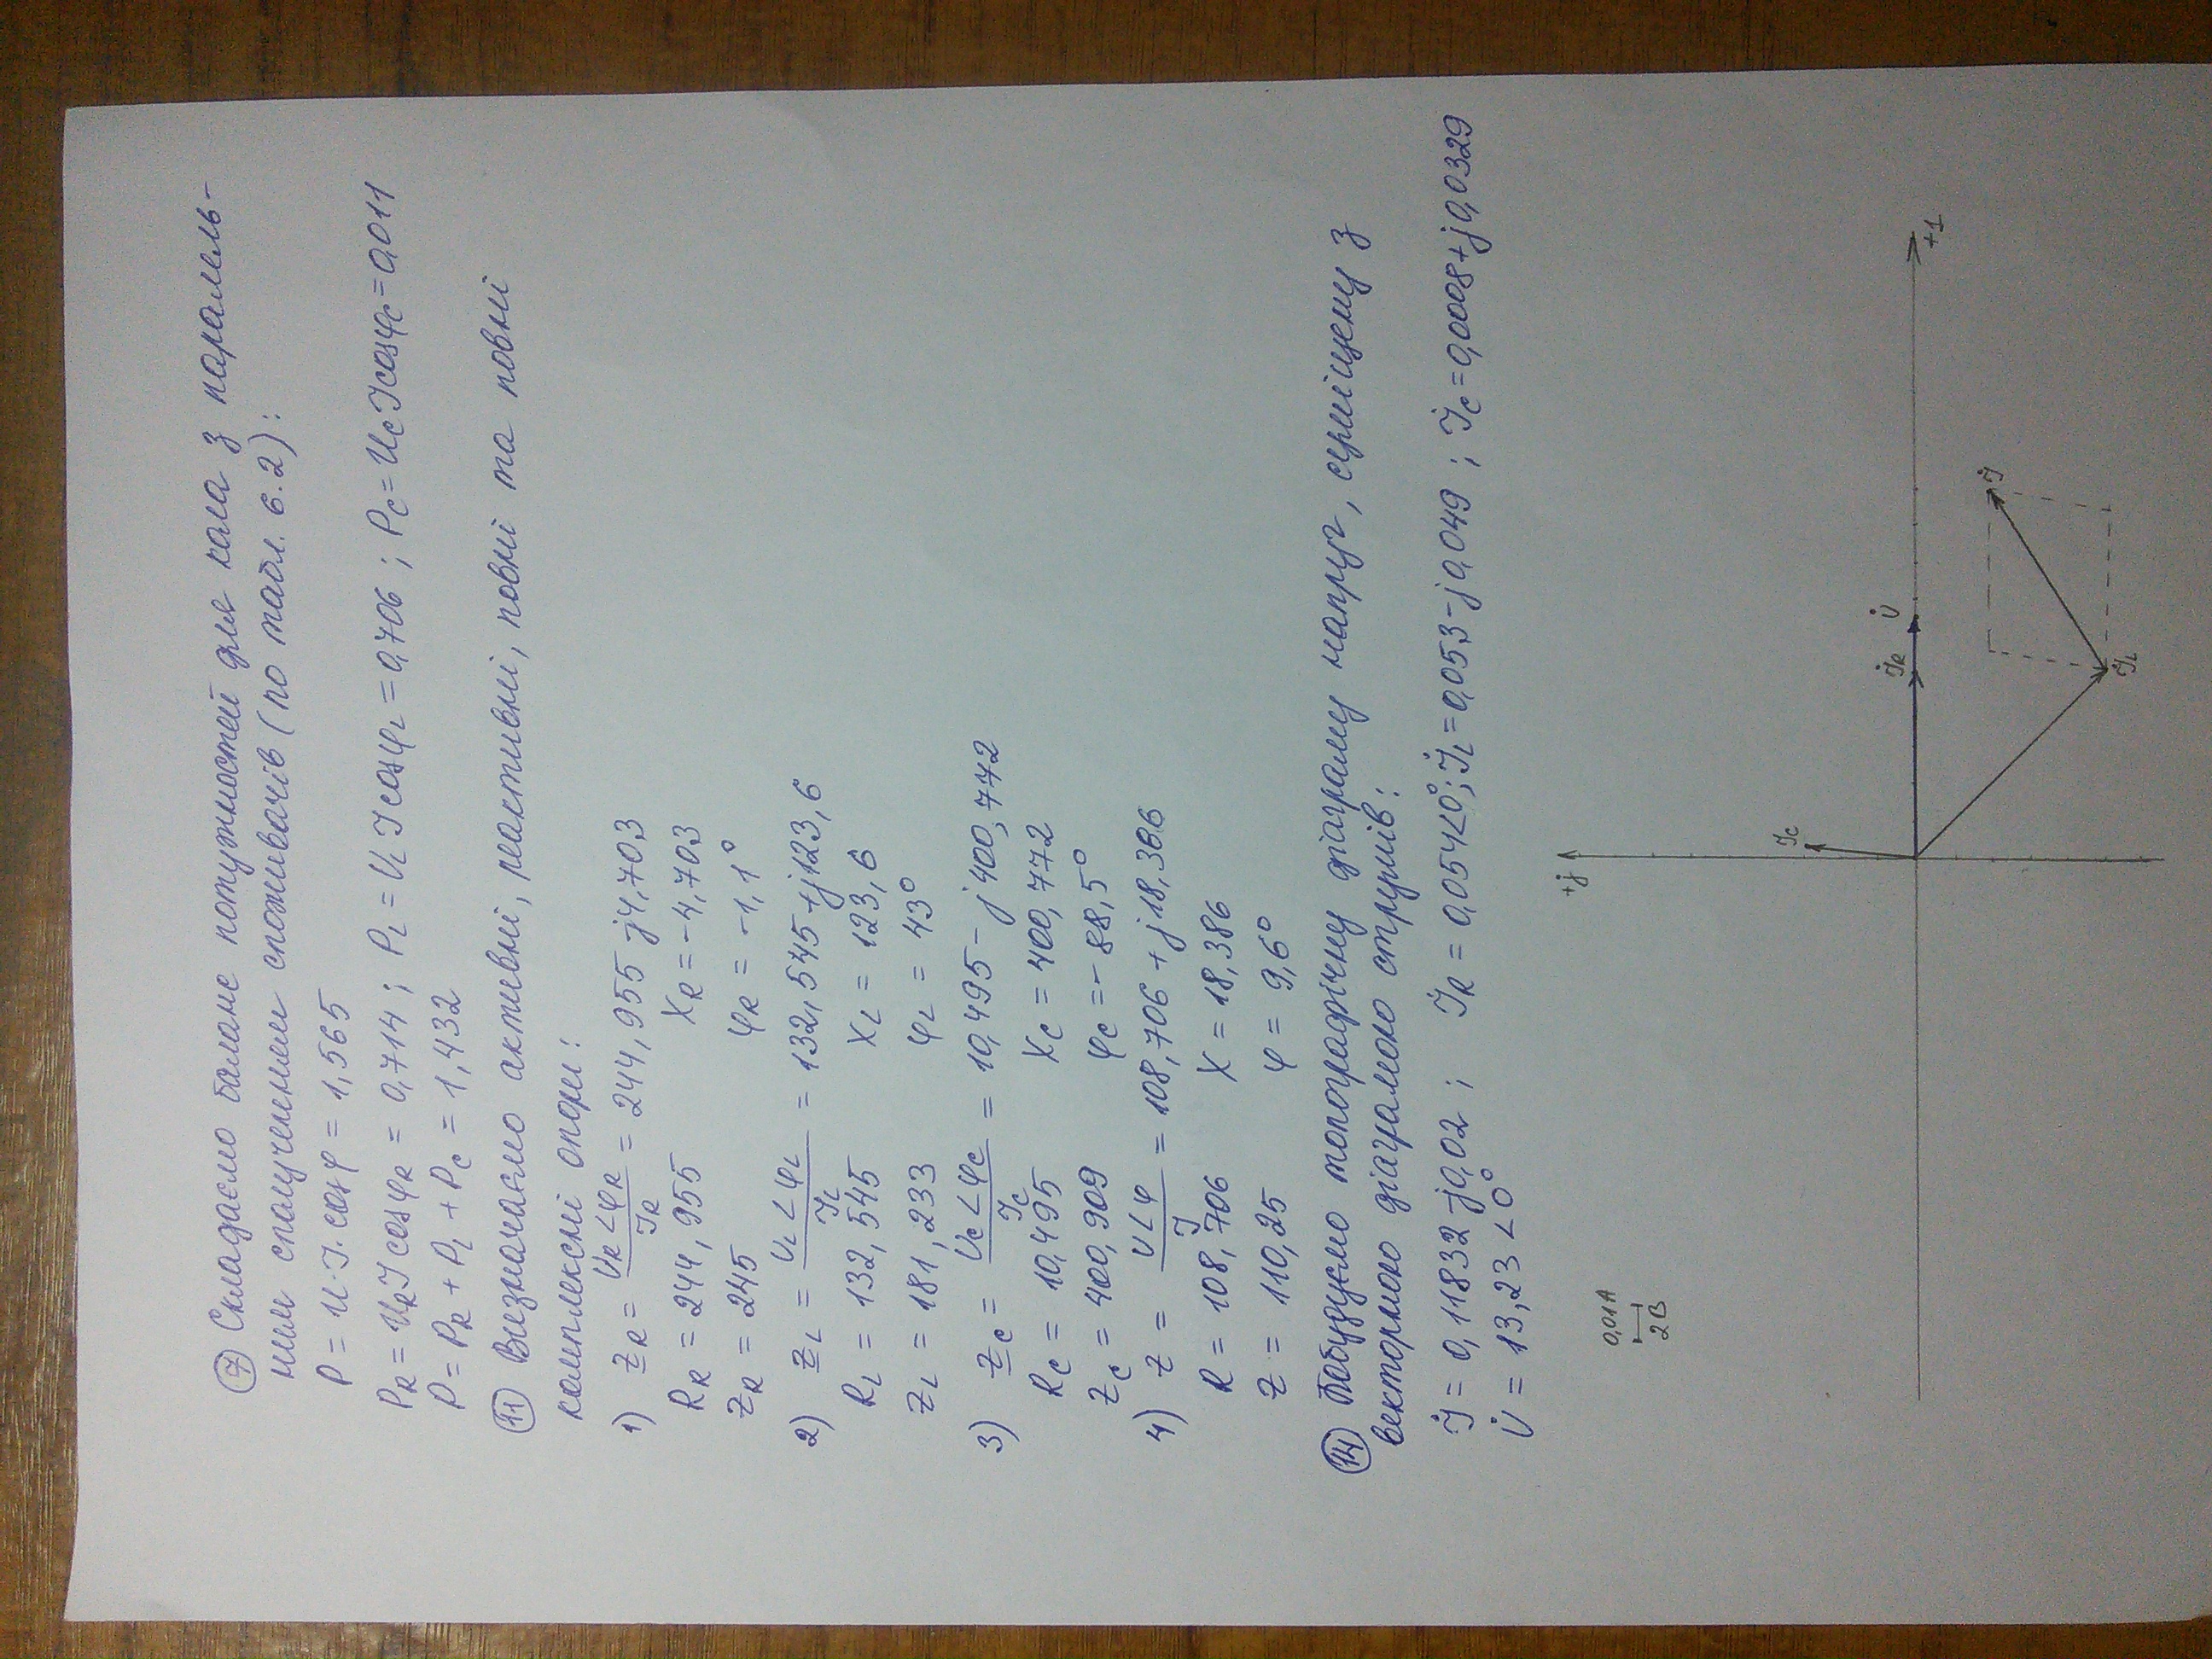 7 Складаємо баланс потужностей для кола з паралель-
ним сполученням споживачів (по табл. 6.2):
P = U·I·cosφ = 1,565
P_R = U_R I cosφ_R = 0,714 ; P_L = U_L I cosφ_L = 0,706 ; P_C = U_C I cosφ_C = 0,011
P = P_R + P_L + P_C = 1,432
11 Визначаємо активні, реактивні, повні та повні
комплексні опори:
1) Z_R = U_R∠φ_R / I_R = 244,955 - j4,703
R_R = 244,955 X_R = -4,703
Z_R = 245 φ_R = -1,1°
2) Z_L = U_L∠φ_L / I_L = 132,545 + j123,6
R_L = 132,545 X_L = 123,6
Z_L = 181,233 φ_L = 43°
3) Z_C = U_C∠φ_C / I_C = 10,495 - j400,772
R_C = 10,495 X_C = 400,772
Z_C = 400,909 φ_C = -88,5°
4) Z = U∠φ / I = 108,706 + j18,386
R = 108,706 X = 18,386
Z = 110,25 φ = 9,6°
14 Побудуємо топографічну діаграму напруг, суміщену з
векторною діаграмою струмів:
İ = 0,11832 - j0,02 ; İ_R = 0,054∠0°; İ_L = 0,053 - j0,049 ; İ_C = 0,0008 + j0,0329
U̇ = 13,23∠0°
0,01А
2В
+j
İ_C
İ_R
U̇
+1
İ
İ_L